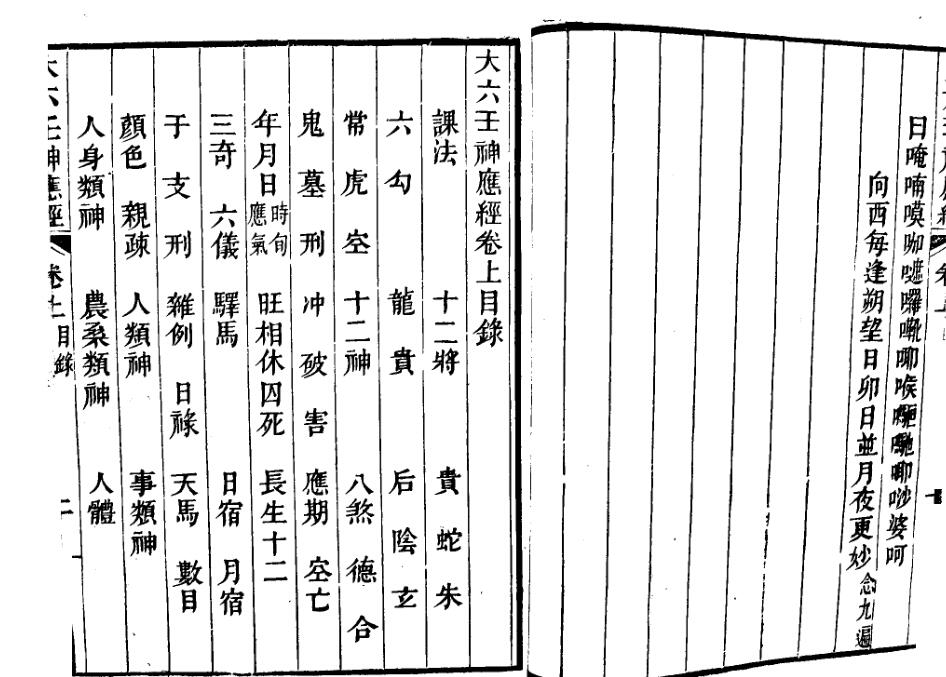 曰唵喃嗼
向西每逢朔望日卯日並月夜更妙念九遍
大六壬神應經卷上目錄
課法 十二將 貴 蛇 朱
六 勾 龍 貴 后 陰 玄
常 虎 空 十二神 八煞 德 合
鬼 墓 刑 冲 破 害 應期 空亡
年月日時旬應氣 旺相休囚死 長生十二
三奇 六儀 驛馬 日宿 月宿
于 支 刑 雜例 日祿 天馬 數目
顏色 親疎 人類神 事類神
人身類神 農桑類神 人體
大六壬神應經 卷上 目錄 二